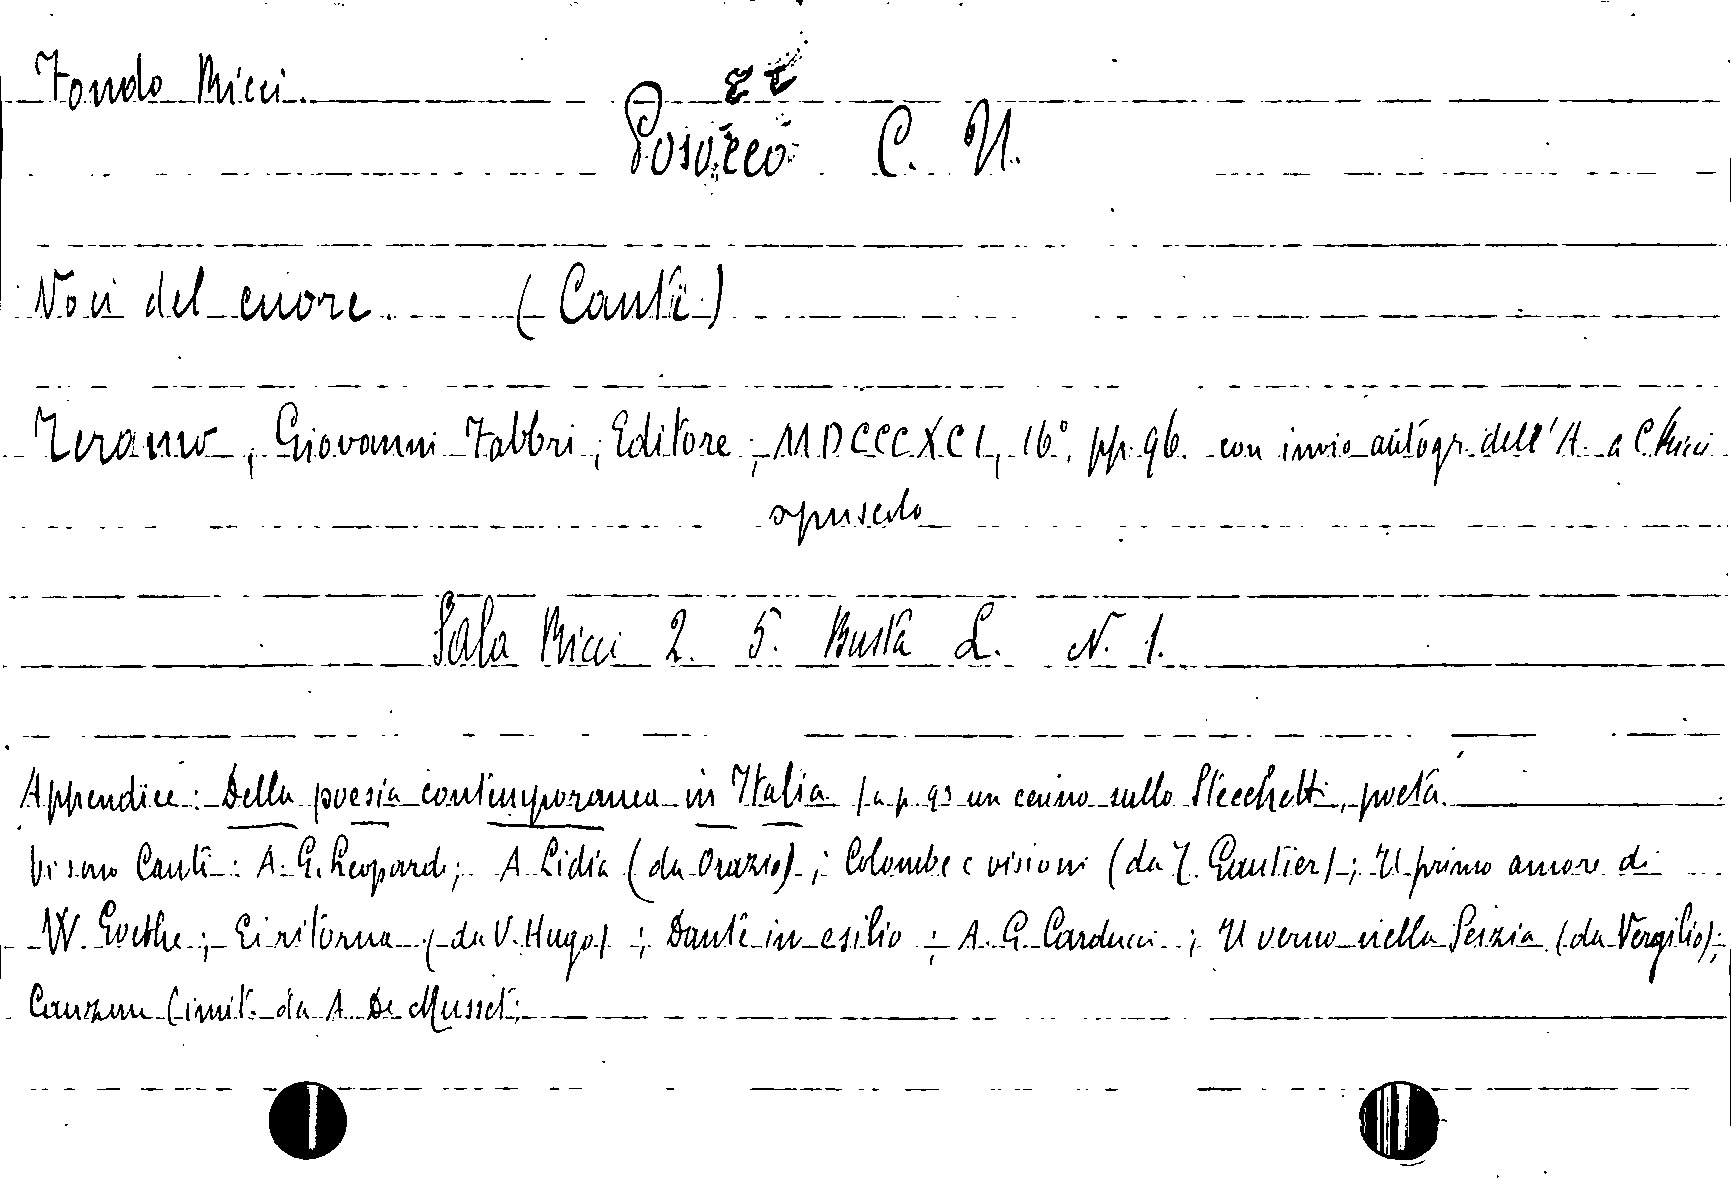 Fondo Ricci.
Posocco C. U.
Voci del cuore (Canti)
Teramo, Giovanni Fabbri, Editore, MDCCCXCI, 16° pp. 96. con invio autogr. dell'A. a C. Ricci
opuscolo
Sala Ricci 2. 5. Busta L. N. 1.
Appendice: Della poesia contemporanea in Italia (a p. 93 un cenno sullo Stecchetti, poeta.
Vi sono Canti: A G. Leopardi; A Lidia (da Orazio); Colombe e visioni (da T. Gautier); Il primo amore di
W. Goethe; Ei ritorna (da V. Hugo); Dante in esilio; A G. Carducci; Il verno nella Scizia (da Vergilio);
Canzone (imit. da A. De Musset;